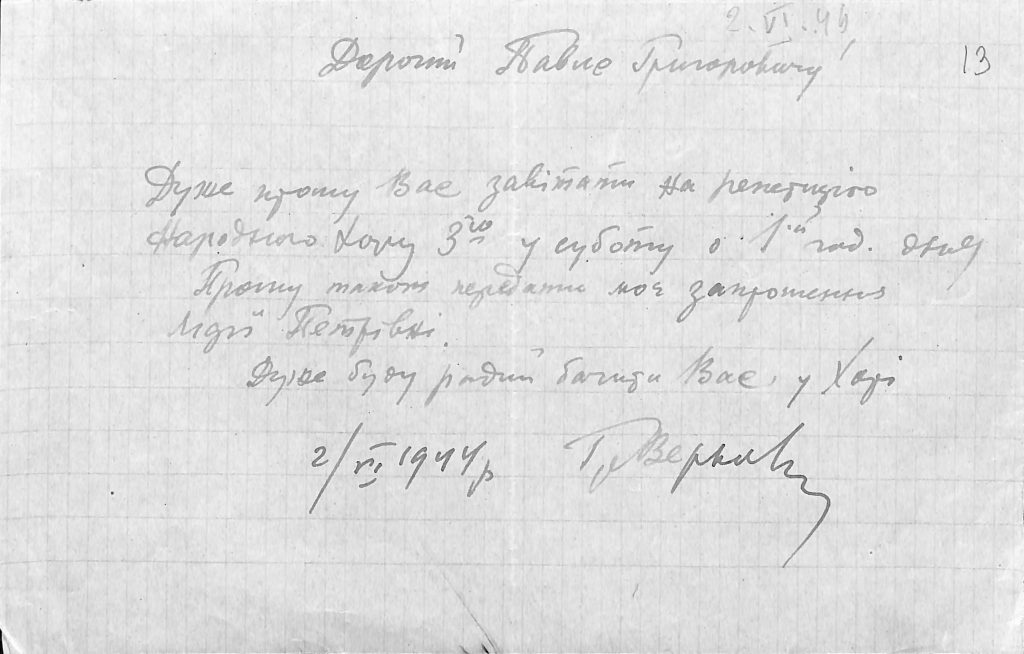 2.VI.44
13
Дорогий Павле Григоровичу!
Дуже прошу Вас завітати на репетицію
Народного Хору 3го у суботу о 1ій год. дня
Прошу також передати моє запрошення
Лідії Петрівні.
Дуже буду радий бачити Вас у Хорі
2/VI 1944р Г. Верьовка